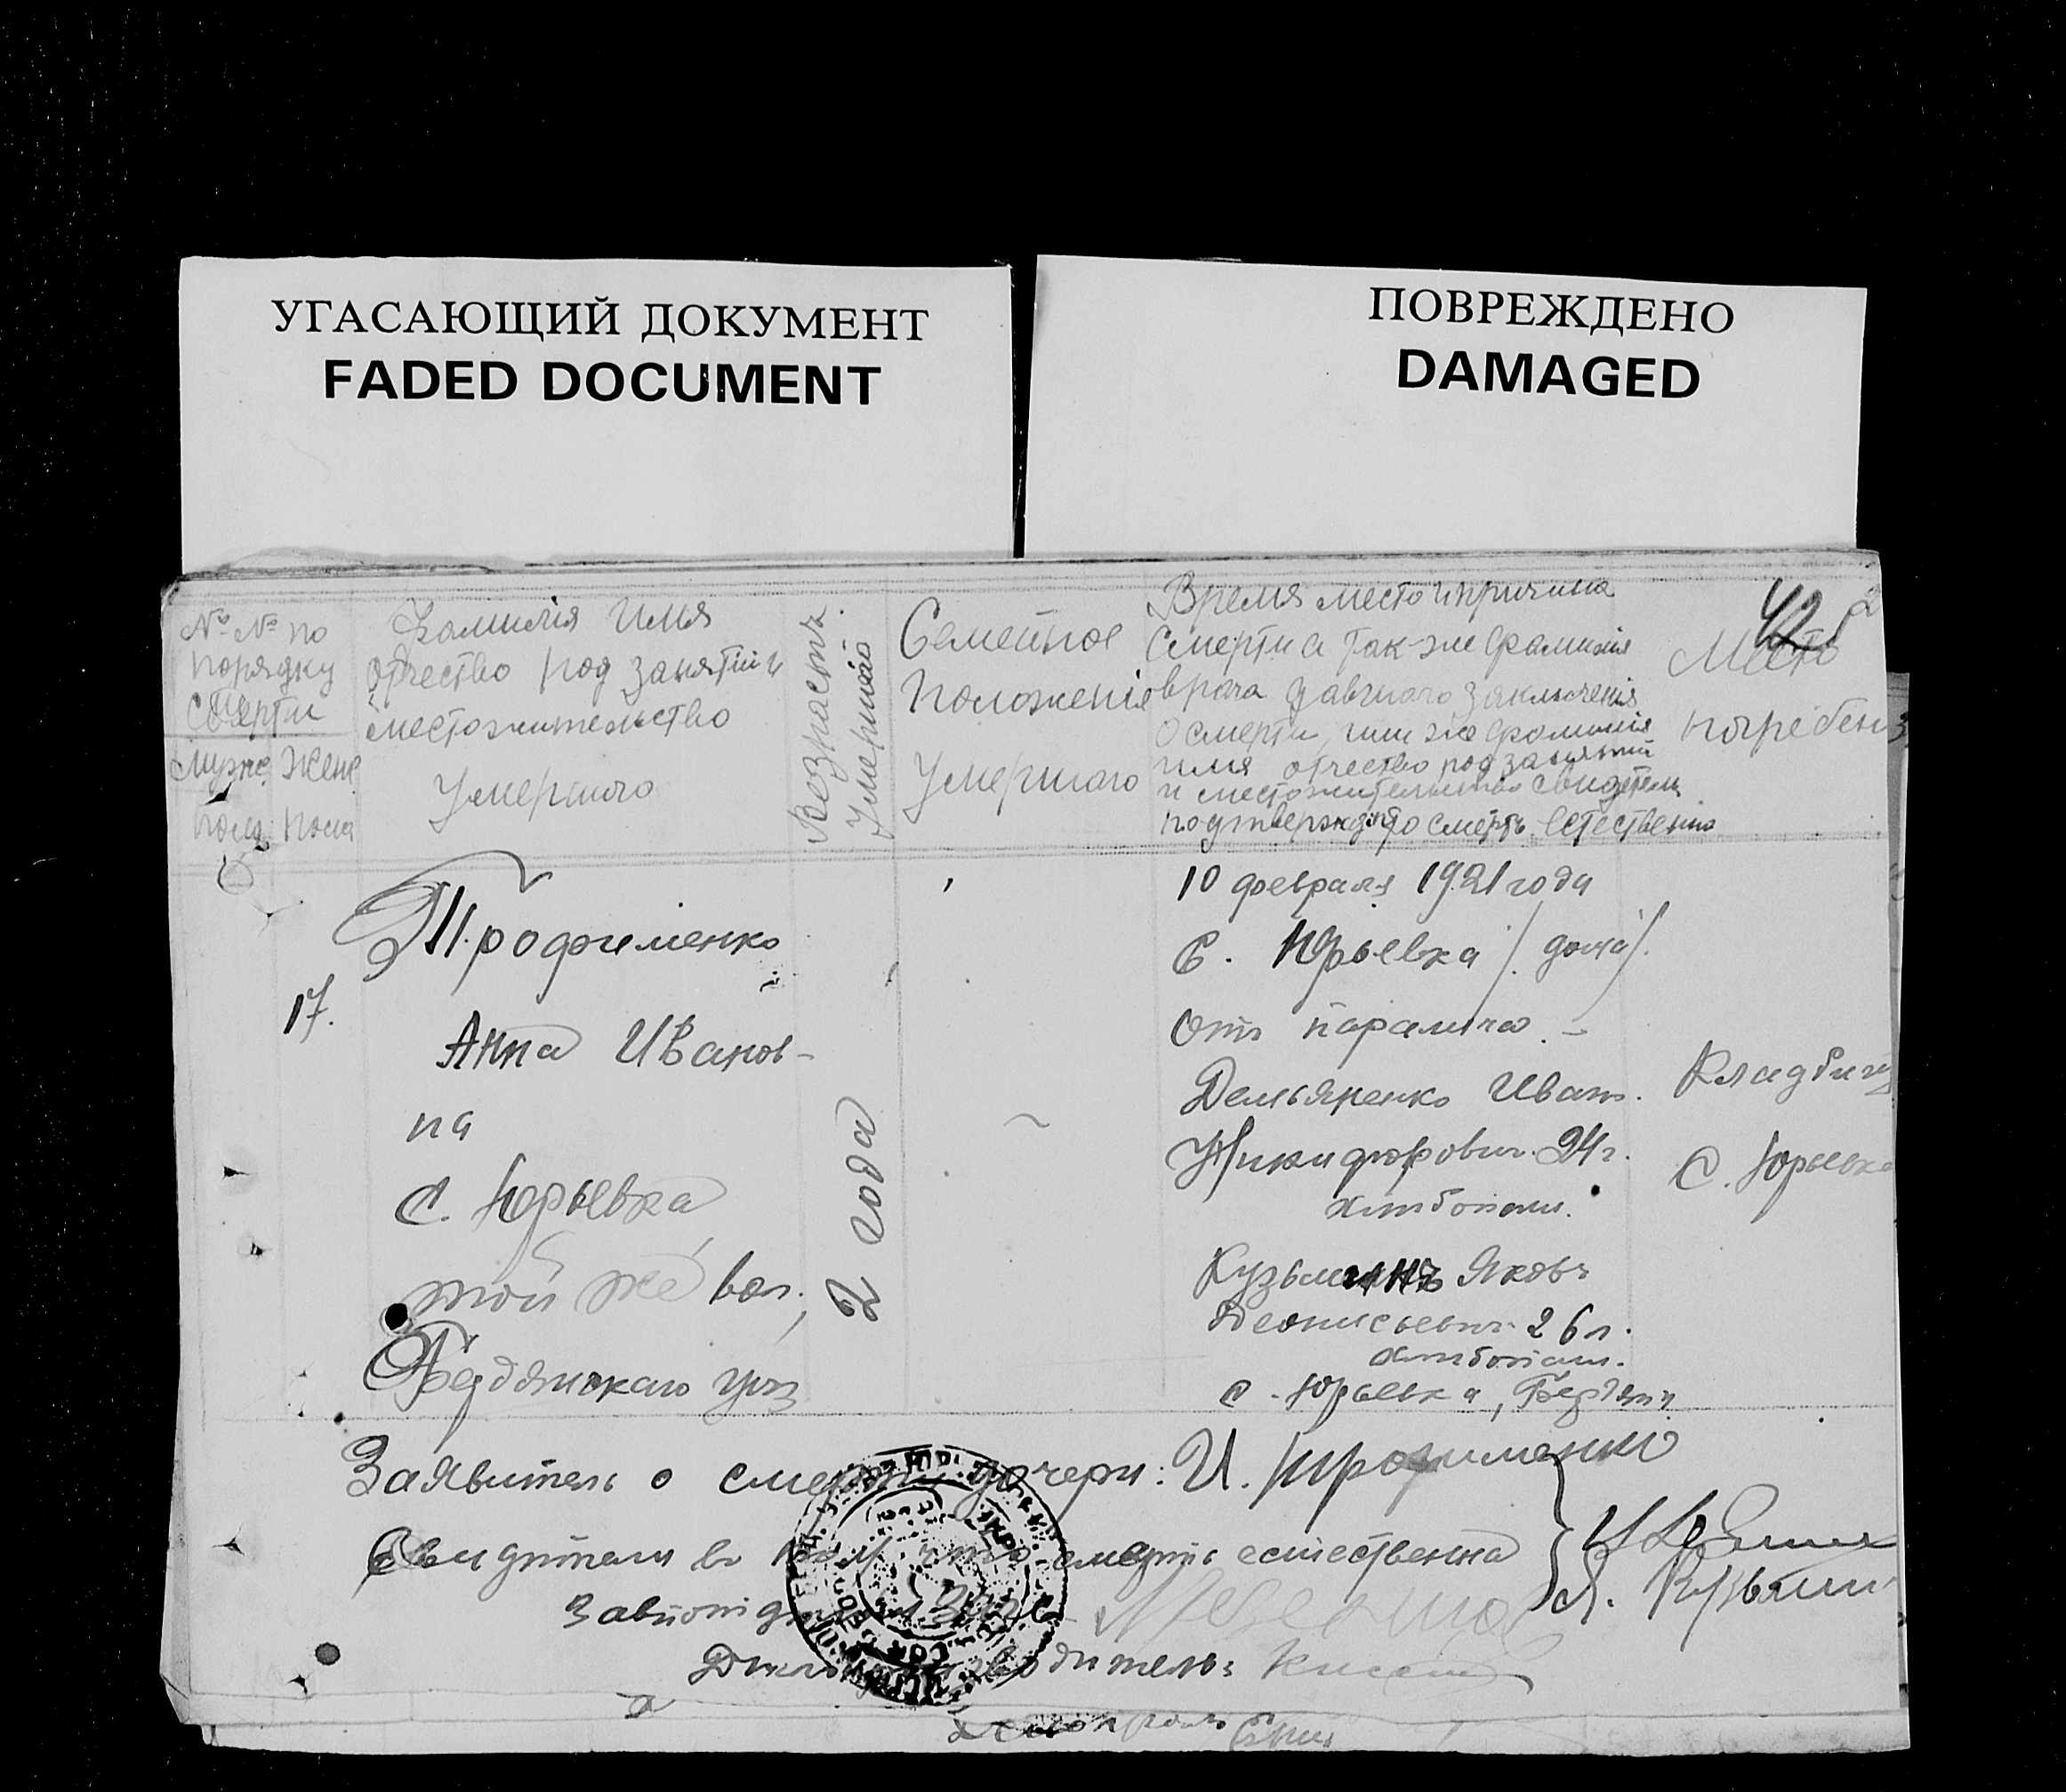 УГАСАЮЩИЙ ДОКУМЕНТ
FADED DOCUMENT
ПОВРЕЖДЕНО
DAMAGED
42
№ № по
порядку
смерти
мужс. женс.
пола пола
Фамилія имя
отчество род занятій и
местожительство
Умершаго
Возрастъ
Умершаго
Семейное
Положеніе
Умершаго
Время место и причина
Смерти а так-же фамилія
врача давшаго заключенія
о смерти, или же фамилія
имя отчество род занятий
и местожительство свидетелей
подтвержд. что смерть естественна
Место
погребен
17.
Трофименко
Анна Иванов-
на
с. Юрьевка
той же вол.,
Бердянскаго уез
2 года
10 февраля 1921 года
с. Юрьевка /дома/.
От паралича -
Демьяненко Иван.
Никифорович. 24 г.
хлебопаш.
Кузьминъ Яковъ
Денисьевич 26 л.
хлебопаш.
с. Юрьевка, Бердян.
Кладбищ
с. Юрьевка
Заявитель о смерти дочери: И. Трофименко
Свидетели в том что смерть естественна
Я. Кузьмин
Завотдел
Делопроизводитель: